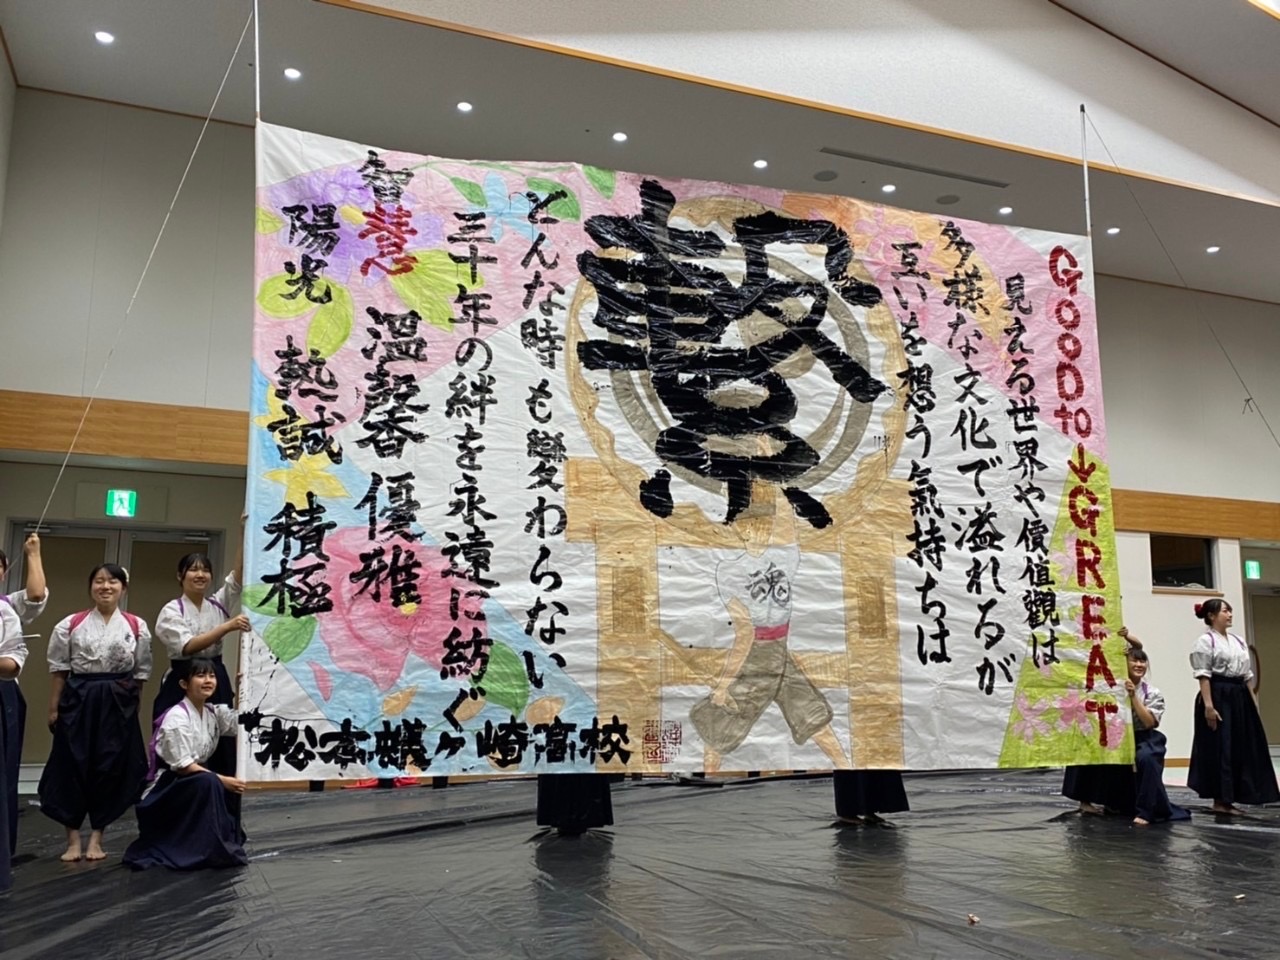 GOOD to → GREAT
見える世界や價値觀は
多樣な文化で溢れるが
互いを想う氣持ちは
繋
どんな時も變わらない
三十年の絆を永遠に紡ぐ
智慧 溫馨 優雅
陽光 熱誠 積極
松本蟻ヶ崎高校
魂